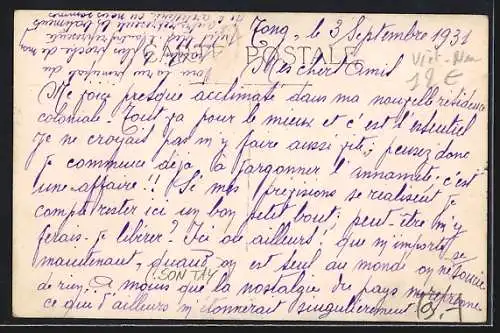 Tong, le 3 Septembre 1931
CARTE POSTALE
Mes chers Amis
Viet-Nam
12 €
Me voici presque acclimaté dans ma nouvelle résidence
coloniale. Tout va pour le mieux et c'est l'essentiel
Je ne croyais pas m'y faire aussi vite; pensez donc
je commence déjà à jargonner l'annamite; c'est
une affaire!! Si mes prévisions se réalisent je
compte rester ici un bon petit bout; peut-être m'y
ferais-je libérer? Ici ou ailleurs, que m'importe
maintenant, quand on est seul au monde on ne se soucie
de rien. A moins que la nostalgie du pays me reprenne
ce que d'ailleurs m'étonnerait singulièrement
(SON TAY